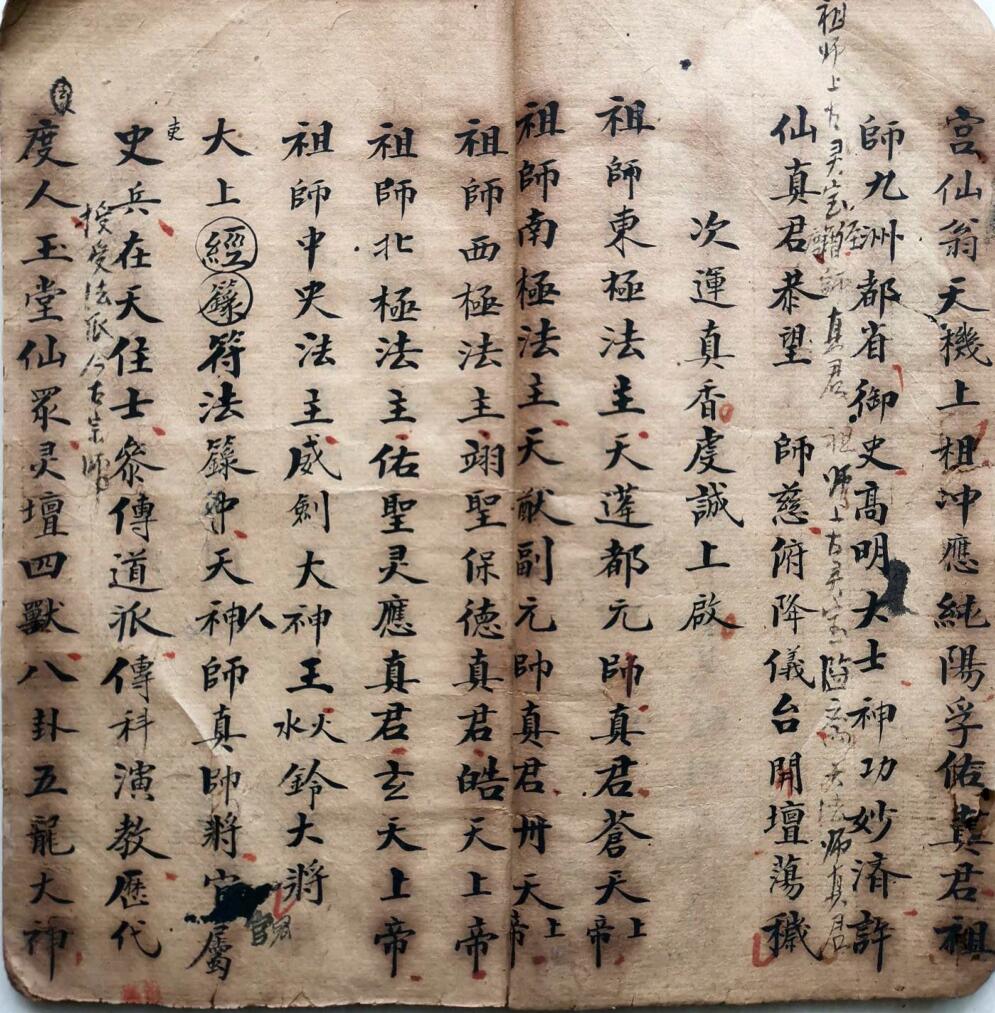 宫仙翁天機上祖冲應純陽孚佑真君祖
師九洲都省御史高明大士神功妙濟許
祖师上古灵宝師真君
祖师上古灵宝天法师真君
仙真君恭望 師慈俯降儀台開壇蕩穢
次運真香虔誠上啟
祖師東極法主天蓬都元師真君蒼天上帝
祖師南極法主天猷副元帥真君丹天上帝
祖師西極法主翊聖保德真君皓天上帝
祖師北極法主佑聖灵應真君玄天上帝
祖師中央法主威劍大神王水火鈴大將
大上經籙符法籙中天神人師真帥將官屬
官君
史兵在天任士叅傳道派傳科演教歷代
吏
授受法派今古宗師
度人玉堂仙眾灵壇四獸八卦五龍大神